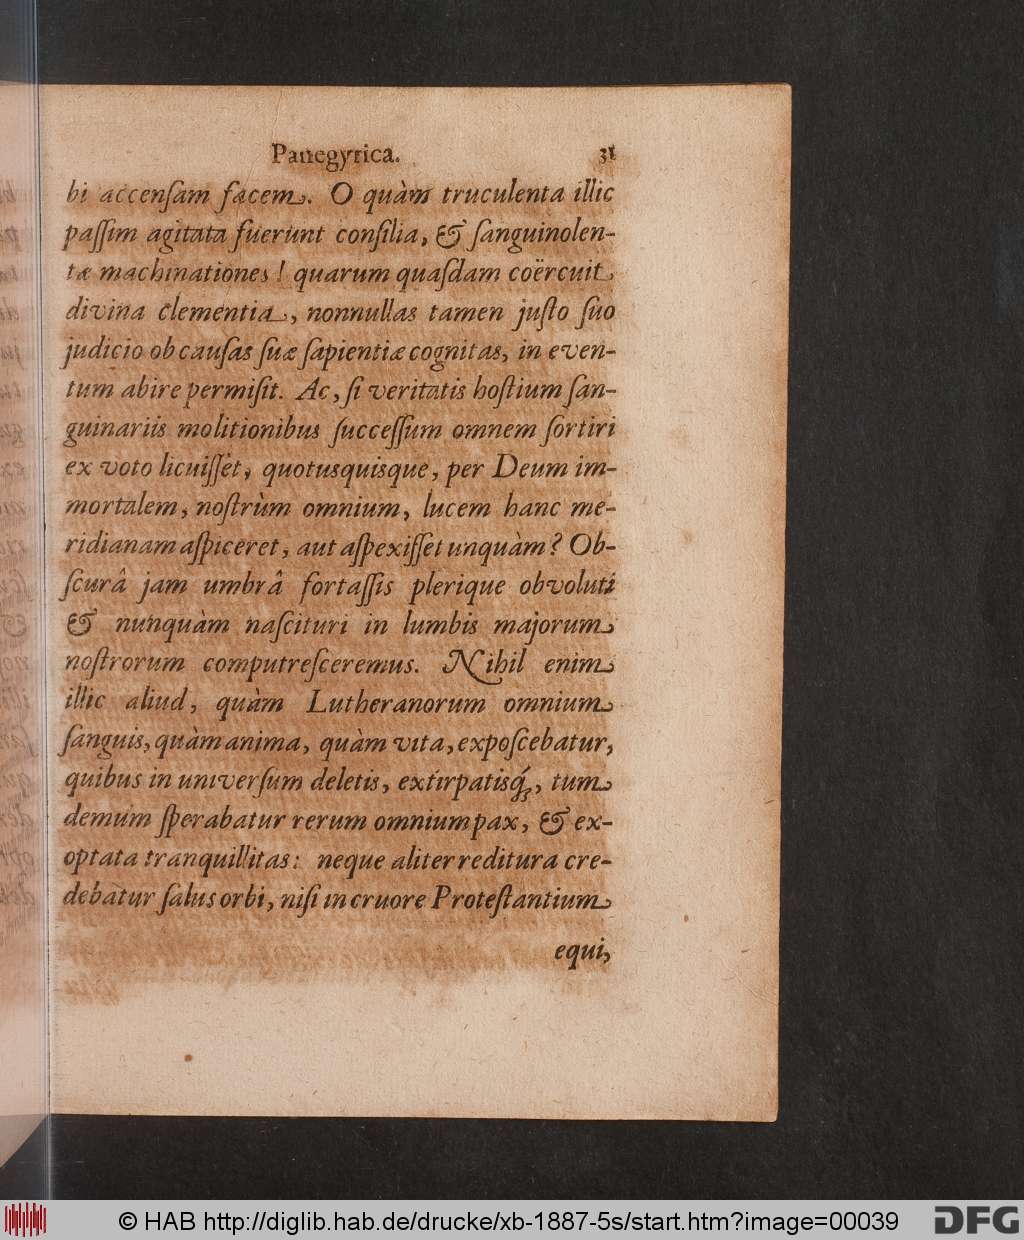 Panegyrica. 31
bi accenſam facem. O quàm truculenta illic
paſſim agitata fuerunt conſilia, & ſanguinolen-
tæ machinationes! quarum quaſdam coërcuit
divina clementia, nonnullas tamen juſto ſuo
judicio ob cauſas ſuæ ſapientiæ cognitas, in even-
tum abire permiſit. Ac, ſi veritatis hoſtium ſan-
guinariis molitionibus ſucceſſum omnem ſortiri
ex voto licuiſſet, quotusquisque, per Deum im-
mortalem, noſtrùm omnium, lucem hanc me-
ridianam aſpiceret, aut aſpexiſſet unquàm? Ob-
ſcurâ jam umbrâ fortaſſis plerique obvoluti
& nunquàm naſcituri in lumbis majorum
noſtrorum computreſceremus. Nihil enim
illic aliud, quàm Lutheranorum omnium
ſanguis, quàm anima, quàm vita, expoſcebatur,
quibus in univerſum deletis, extirpatisq́;, tum
demùm ſperabatur rerum omnium pax, & ex-
optata tranquillitas: neque aliter reditura cre-
debatur ſalus orbi, niſi in cruore Proteſtantium
equi,
© HAB http://diglib.hab.de/drucke/xb-1887-5s/start.htm?image=00039
DFG